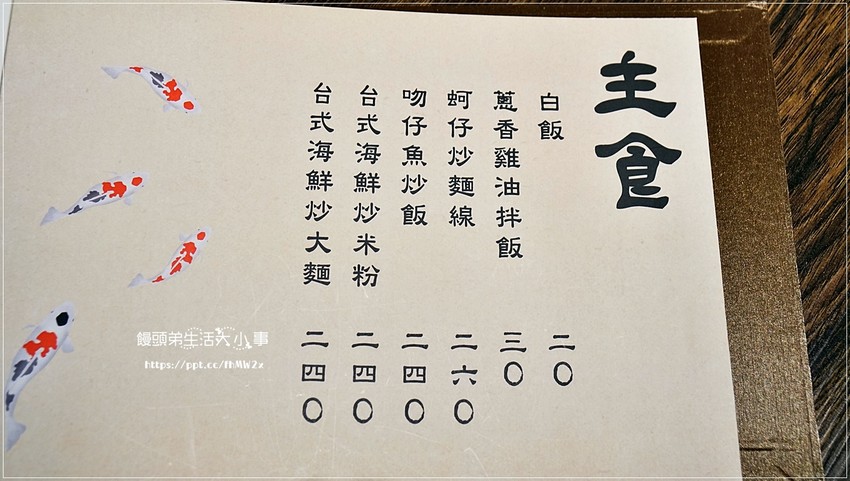 主食
白飯 二〇
蔥香雞油拌飯 三〇
蚵仔炒麵線 二六〇
吻仔魚炒飯 二四〇
台式海鮮炒米粉 二四〇
台式海鮮炒大麵 二四〇
饅頭弟生活大小事
https://ppt.cc/fhMW2x